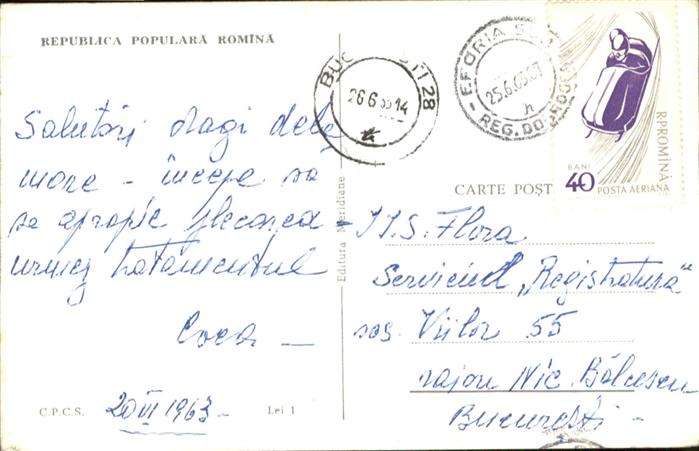 REPUBLICA POPULARĂ ROMÎNĂ
Salutări dragi dela
mare – începe sa
se apropie plecarea –
urmez tratamentul
Coca –
20 VI 1963 –
C.P.C.S.
Lei 1
Editura Meridiane
BUCUREȘTI 28
26.6.63.14
EFORIA SUD
25.6.63.07
REG. DOBROGEA
R.P.ROMÎNĂ
BANI
40
POSTA AERIANĂ
CARTE POȘT
I.I.S. Flora
Serviciul „Registratura“
șos. Viilor 55
raion Nic. Bălcescu
București –